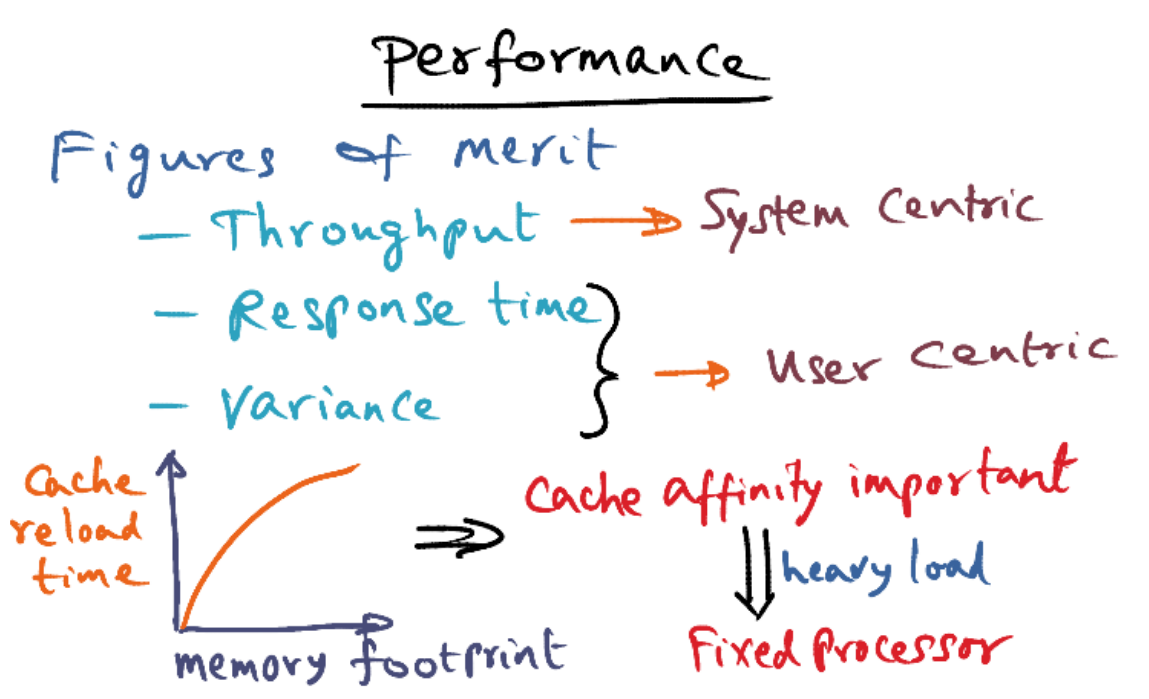 Performance
Figures of merit
- Throughput → System Centric
- Response time
- Variance
→ User Centric
Cache
reload
time
memory footprint
⇒ Cache affinity important
⇓ heavy load
Fixed Processor